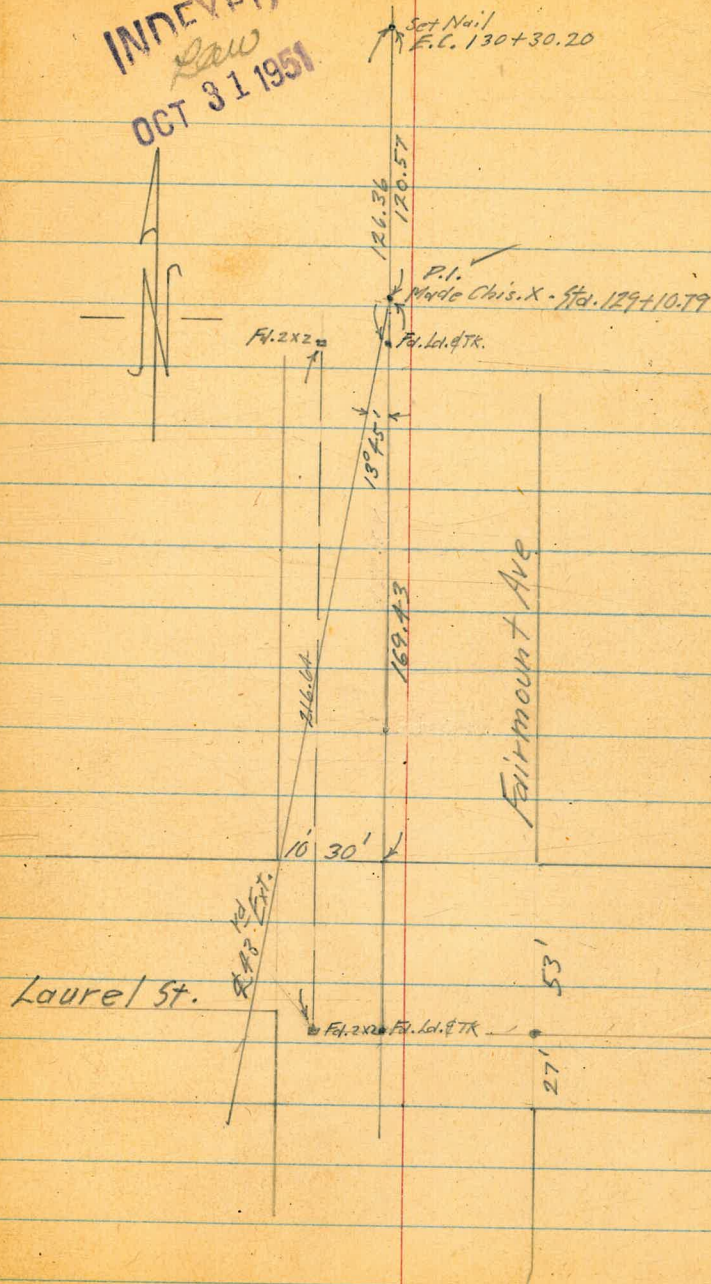 INDEXED
Law
OCT 31 1951
Set Nail
E.C. 130+30.20
126.36
120.57
P.I.
Made Chis. X - Sta. 129+10.79
Fd. 2x2
Fd. Ld. & Tk.
N
13°45'
169.43
216.64
Fairmount Ave
10' 30'
℄ 43rd Ext.
53'
Laurel St.
Fd. 2x2 Fd. Ld. & Tk
27'